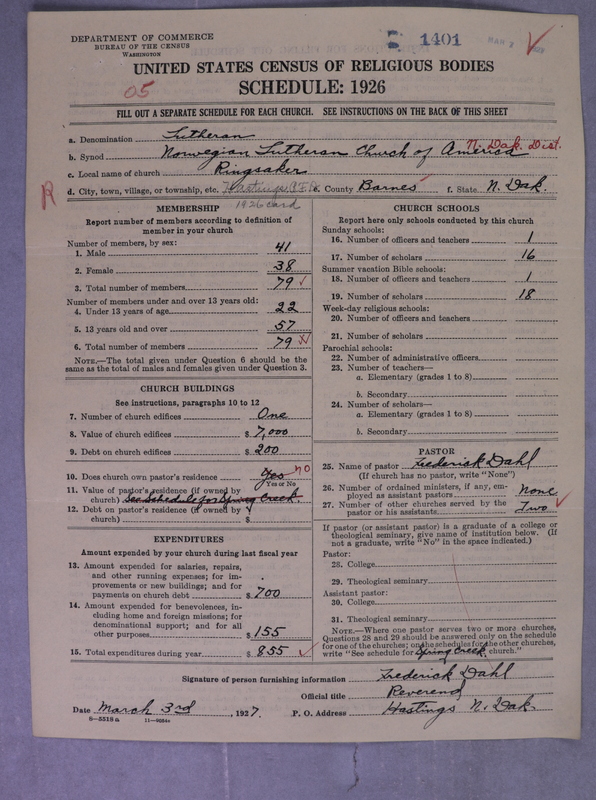 DEPARTMENT OF COMMERCE
BUREAU OF THE CENSUS
WASHINGTON
1401
MAR 2 1927
UNITED STATES CENSUS OF RELIGIOUS BODIES
05
SCHEDULE: 1926
FILL OUT A SEPARATE SCHEDULE FOR EACH CHURCH. SEE INSTRUCTIONS ON THE BACK OF THIS SHEET
a. Denomination Lutheran
N. Dak. Dist.
b. Synod Norwegian Lutheran Church of America
c. Local name of church Ringsaker
R
d. City, town, village, or township, etc. Hastings, e. County Barnes f. State N. Dak.
1926 card
MEMBERSHIP
Report number of members according to definition of
member in your church
Number of members, by sex:
1. Male 41
2. Female 38
3. Total number of members 79
Number of members under and over 13 years old:
4. Under 13 years of age 22
5. 13 years old and over 57
6. Total number of members 79
NOTE.—The total given under Question 6 should be
same as the total of males and females given under Question 3.
CHURCH BUILDINGS
See instructions, paragraphs 10 to 12
7. Number of church edifices One
8. Value of church edifices $ 7,000
9. Debt on church edifices $ 200
10. Does church own pastor's residence Yes no
Yes or No
11. Value of pastor's residence (if owned by
church) See Schedule for Spring Creek.
12. Debt on pastor's residence (if owned by
church) $
EXPENDITURES
Amount expended by your church during last fiscal year
13. Amount expended for salaries, repairs,
and other running expenses; for im-
provements or new buildings; and for
payments on church debt $ 700
14. Amount expended for benevolences, in-
cluding home and foreign missions; for
denominational support; and for all
other purposes $ 155
15. Total expenditures during year $ 855
CHURCH SCHOOLS
Report here only schools conducted by this church
Sunday schools:
16. Number of officers and teachers 1
17. Number of scholars 16
Summer vacation Bible schools:
18. Number of officers and teachers 1
19. Number of scholars 18
Week-day religious schools:
20. Number of officers and teachers
21. Number of scholars
Parochial schools:
22. Number of administrative officers
23. Number of teachers—
a. Elementary (grades 1 to 8)
b. Secondary
24. Number of scholars—
a. Elementary (grades 1 to 8)
b. Secondary
PASTOR
25. Name of pastor Frederick Dahl
(If church has no pastor, write "None")
26. Number of ordained ministers, if any, em-
ployed as assistant pastors None
27. Number of other churches served by the
pastor or his assistants Two
If pastor (or assistant pastor) is a graduate of a college or
theological seminary, give name of institution below. (If
not a graduate, write "No" in the space indicated.)
Pastor:
28. College
29. Theological seminary
Assistant pastor:
30. College
31. Theological seminary
NOTE.—Where one pastor serves two or more churches,
Questions 28 and 29 should be answered only on the schedule
for one of the churches; on the schedules for the other churches,
write "See schedule for Spring Creek church."
Signature of person furnishing information Frederick Dahl
Official title Reverend
Date March 3rd, 1927. P. O. Address Hastings N. Dak.